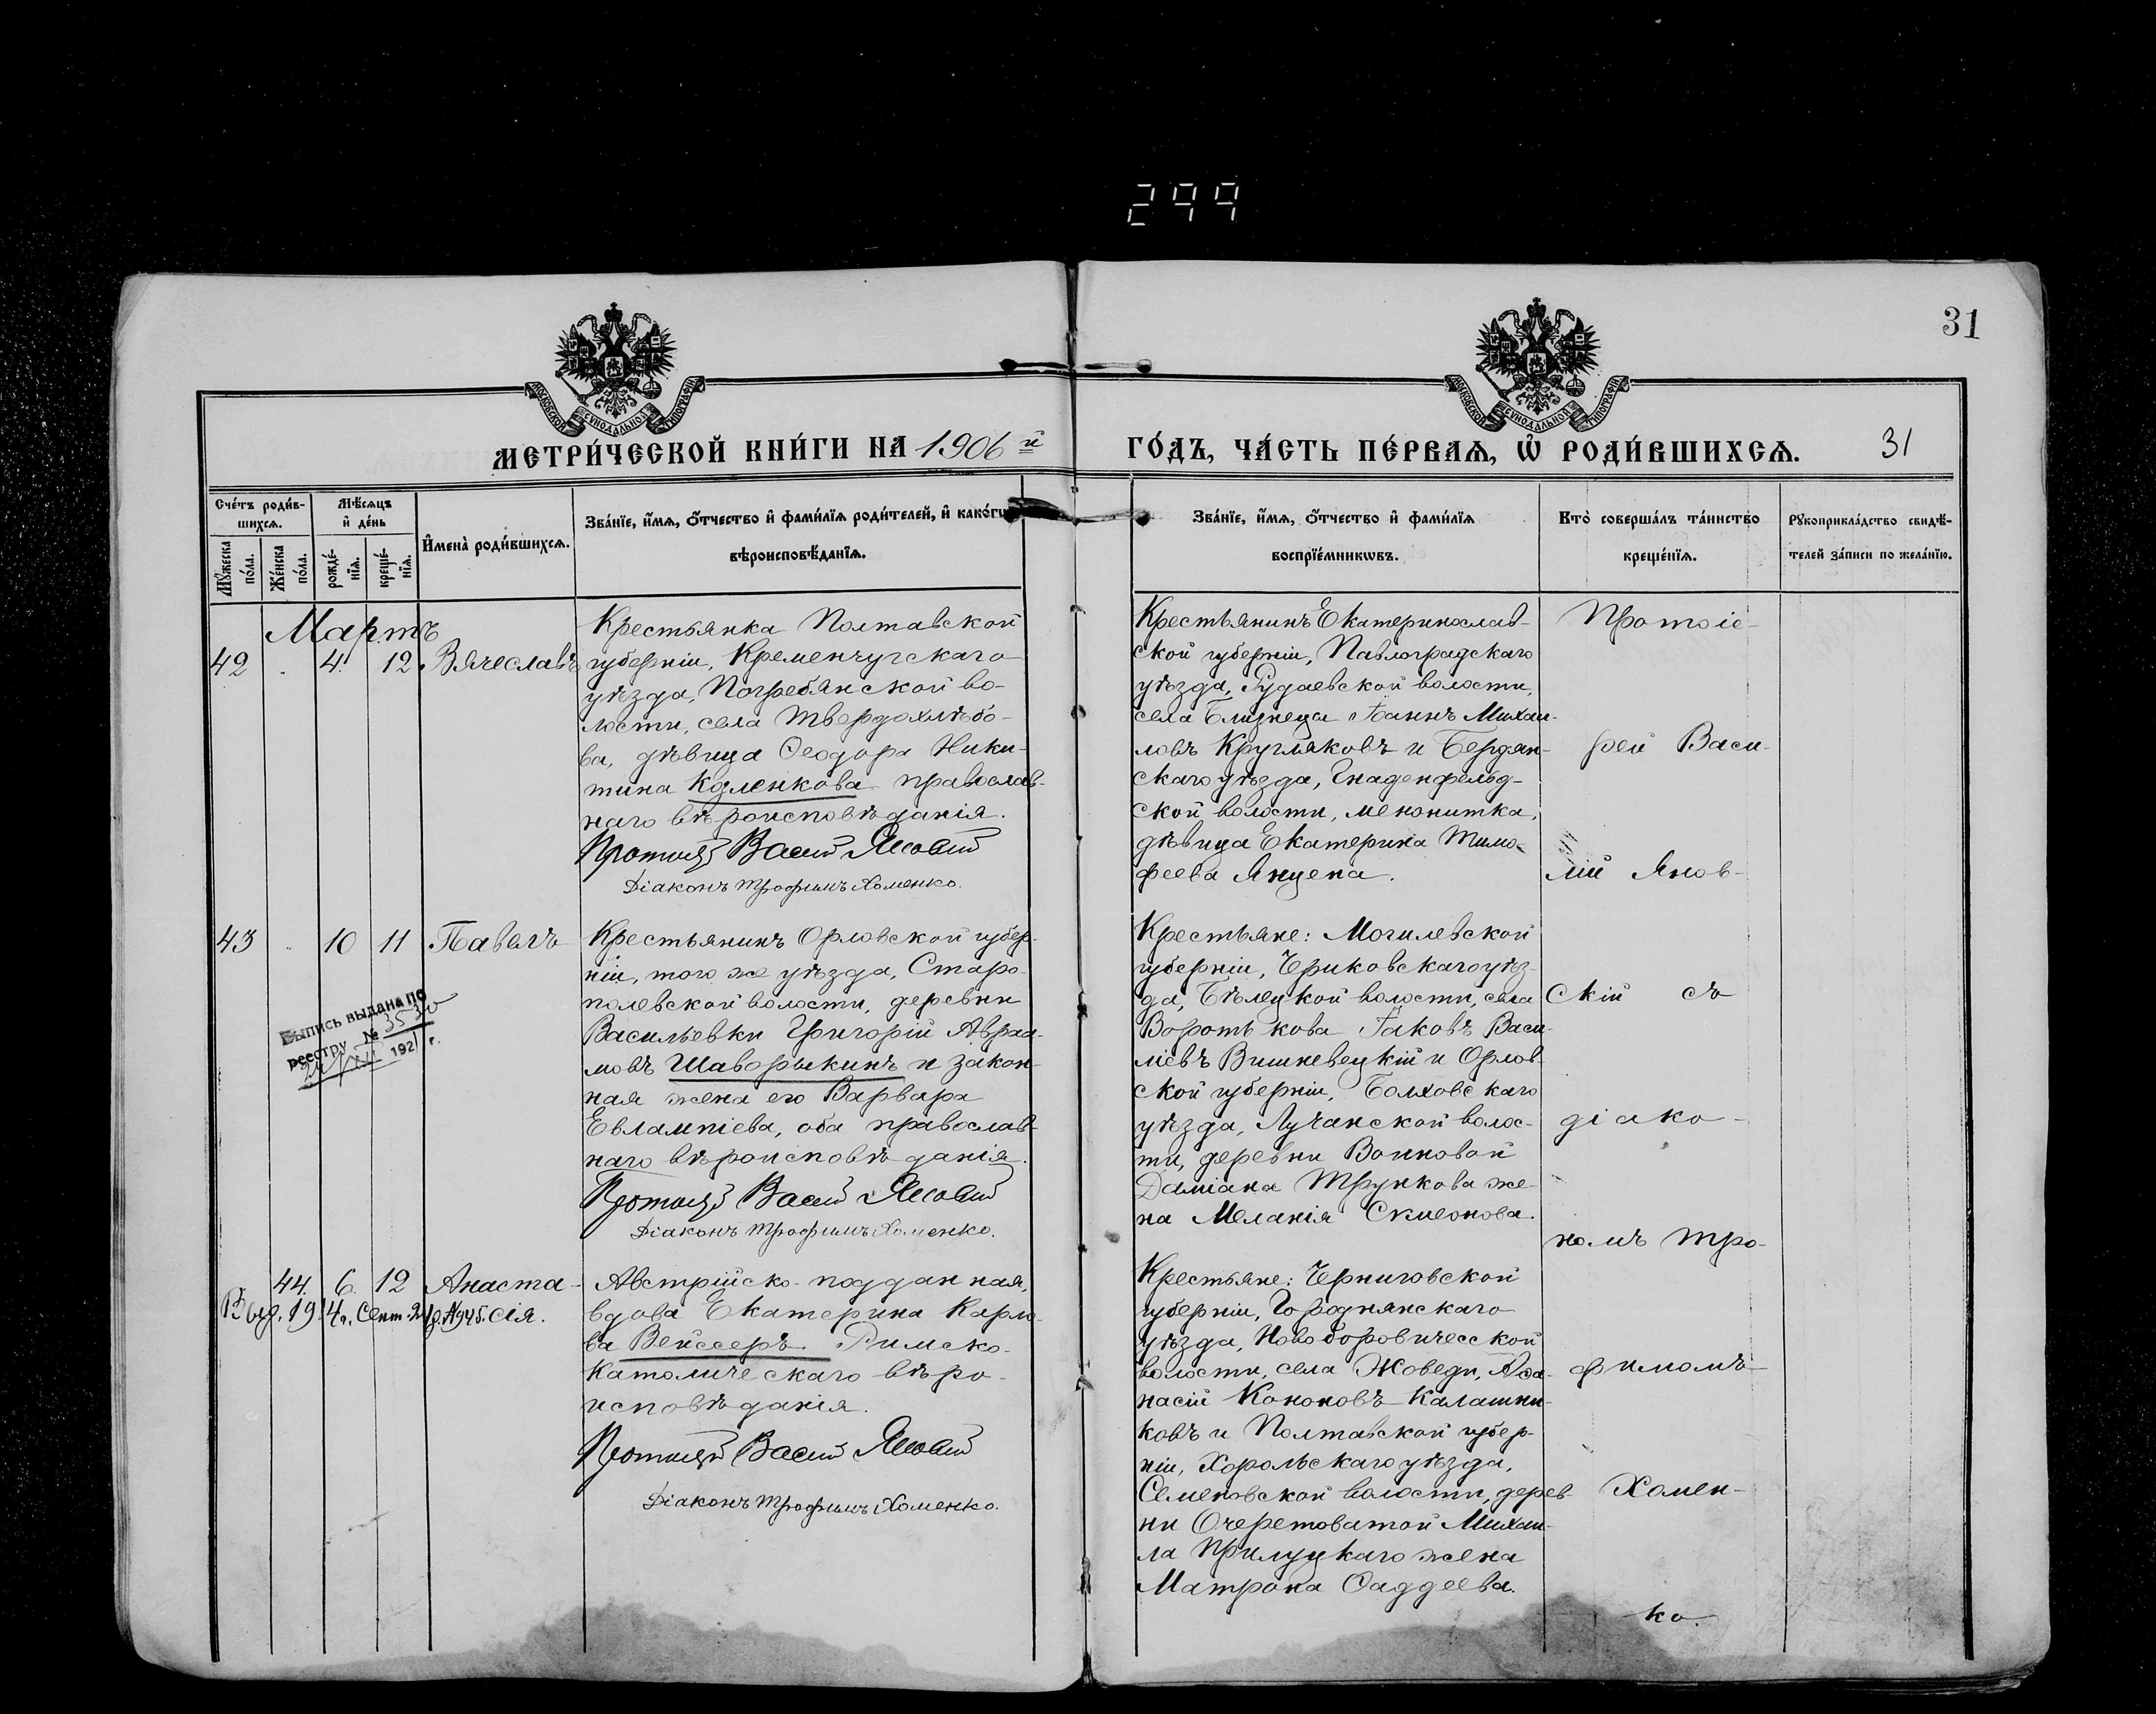 299
31
МОСКОВСКОЙ СѴНОДАЛЬНОЙ ТИПОГРАФІИ
МОСКОВСКОЙ СѴНОДАЛЬНОЙ ТИПОГРАФІИ
МЕТРИ́ЧЕСКОЙ КНИ́ГИ НА 1906 й
ГО́ДЪ, ЧА́СТЬ ПЕ́РВАѦ, Ѡ҆ РОДИ́ВШИХСѦ.
31
Сче́тъ роди́в-
шихсѧ.
Мꙋ́жеска по́ла.
Же́нска по́ла.
Мѣ́сѧцъ
и҆ де́нь
рожде́-
нїѧ.
креще́-
нїѧ.
И҆мена̀ роди́вшихсѧ.
Зва́нїе, и҆́мѧ, ѻ҆́тчество и҆ фами́лїѧ роди́телей, и҆ како́гѡ
вѣроисповѣ́данїѧ.
Зва́нїе, и҆́мѧ, ѻ҆́тчество и҆ фами́лїѧ
воспрїе́мникѡвъ.
Кто̀ соверша́лъ та́инство
креще́нїѧ.
Рꙋкоприкла́дство свидѣ́-
телей за́писи по жела́нїю.
Мартъ
42 4 12 Вячеславъ
Крестьянка Полтавской
губерніи, Кременчугскаго
уѣзда, Погребянской во-
лости, села Твердохлѣбо-
ва, дѣвица Ѳеодора Ники-
тина Коленкова православ-
наго вѣроисповѣданія.
Протоіер Васил Яновскій
Діаконъ Трофимъ Хоменко.
Крестьянинъ Екатеринослав-
ской губерніи, Павлоградскаго
уѣзда, Рудаевской волости,
села Близнеца Іоаннъ Михаи-
ловъ Кругляковъ и Бердян-
скаго уѣзда, Гнаденфельд-
ской волости, менонитка,
дѣвица Екатерина Тимо-
феева Янцена.
43 10 11 Павелъ
Выпись выдана по
реестру № 3530
192 г.
Крестьянинъ Орловской губер-
ніи, того же уѣзда, Старо-
полевской волости, деревни
Васильевки Григорій Авраа-
мовъ Шаворыкинъ и закон-
ная жена его Варвара
Евлампіева, оба православ-
наго вѣроисповѣданія.
Протоіер Васил Яновскій
Діаконъ Трофимъ Хоменко.
Крестьяне: Могилевской
губерніи, Чериковскаго уѣз-
да, Бѣлецкой волости, села
Воротькова Іаковъ Васи-
ліевъ Вишневецкій и Орлов-
ской губерніи, Болховскаго
уѣзда, Лучанской волос-
ти, деревни Воиновой
Даміана Трункова же-
на Меланія Симеонова.
44. 6. 12 Анаста-
сія.
Выд. 1914 г. Сент. № 945.
Австрійско-подданная,
вдова Екатерина Карло-
ва Вейссеръ Римско-
Католическаго вѣро-
исповѣданія.
Протоіер Васил Яновскій
Діаконъ Трофимъ Хоменко.
Крестьяне: Черниговской
губерніи, Городнянскаго
уѣзда, Новоборовичесской
волости, села Жоведи, Аѳа-
насій Кононовъ Калашни-
ковъ и Полтавской губер-
ніи, Хорольскаго уѣзда,
Семеновской волости, дерев-
ни Очеретоватой Михаи-
ла Прилуцкаго жена
Матрона Ѳаддеева.
Протоіе-
рей Васи-
лій Янов-
скій съ
діако-
номъ Тро-
фимомъ
Хомен-
ко.